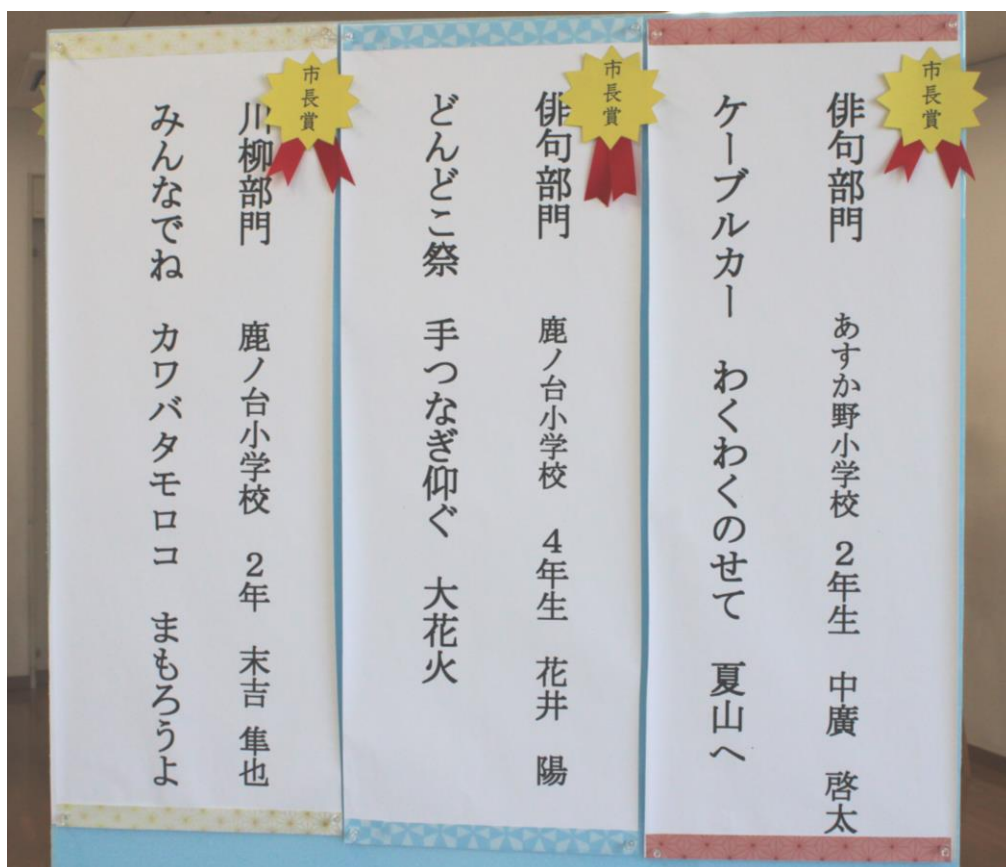 市長賞
俳句部門 あすか野小学校 2年生 中廣 啓太
ケーブルカー わくわくのせて 夏山へ
市長賞
俳句部門 鹿ノ台小学校 4年生 花井 陽
どんどこ祭 手つなぎ仰ぐ 大花火
市長賞
川柳部門 鹿ノ台小学校 2年 末吉 隼也
みんなでね カワバタモロコ まもろうよ